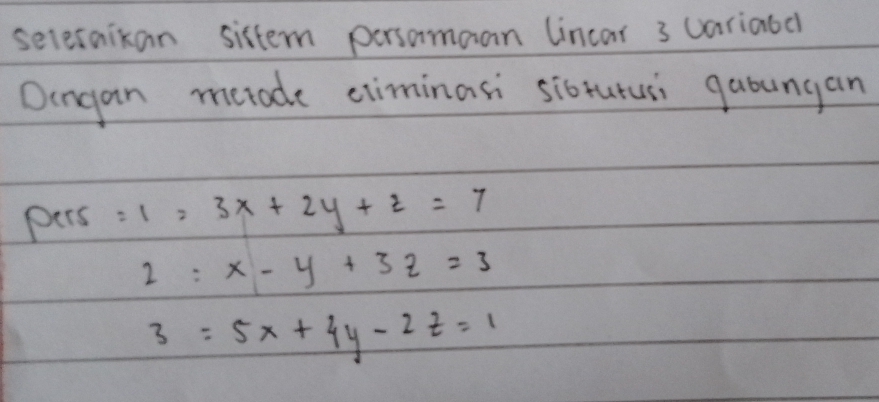 Selesaikan sistem persamaan lincar 3 variabel
Dengan metode eliminasi sibtutusi gabungan
pers = 1 = 3x + 2y + z = 7
2 : x - y + 3z = 3
3 = 5x + 4y - 2z = 1